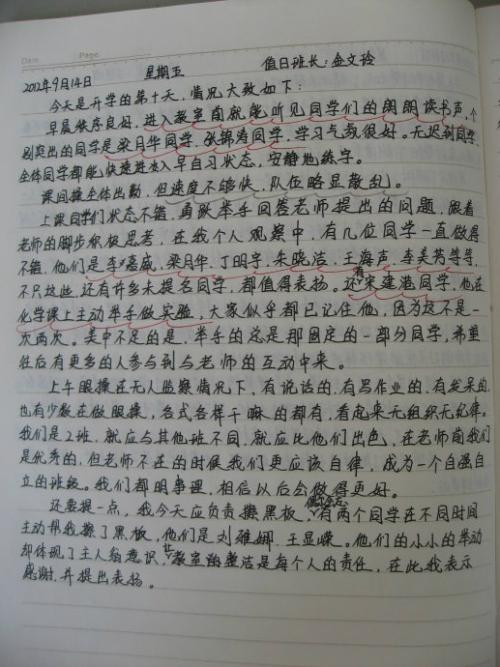 Date. Page.
2012年9月14日 星期五 值日班长:金文玲
今天是开学的第十天,情况大致如下:
早晨秩序良好,进入教室前就能听见同学们的朗朗读书声,个
别突出的同学是梁月华同学、张锦涛同学,学习气氛很好。无迟到同学,
全体同学都能快速进入早自习状态,安静地练字。
课间操全体出勤,但速度不够快,队伍略显散乱。
上课同学们状态不错,勇跃举手回答老师提出的问题,跟着
老师的脚步积极思考,在我个人观察中,有几位同学一直做得
不错,他们是李嘉威、梁月华、丁明宇、朱晓洁、王海声、李美芮等等,
不只这些,还有许多未提名同学,都值得表扬。还有宋建港同学,他在
化学课上主动举手做实验,大家似乎都已记住他,因为这不是一
次两次。美中不足的是,举手的总是那固定的一部分同学,希望
往后有更多的人参与到与老师的互动中来。
上午眼操在无人监察情况下,有说话的,有写作业的,有发呆的,
也有少数在做眼操,各式各样干嘛的都有,看起来无组织无纪律。
我们是2班,就应与其他班不同,就应比他们出色,在老师前我们
是优秀的,但老师不在的时候我们更应该自律,成为一个自强自
立的班级。我们都明事理,相信以后会做得更好。
还要提一点,我今天应负责擦黑板,有两个同学在不同时间
主动帮我擦了黑板,他们是刘雅娜、王显嵘。他们的小小的举动
却体现了主人翁意识,教室的整洁是每个人的责任,在此我表示
感谢,并提出表扬。